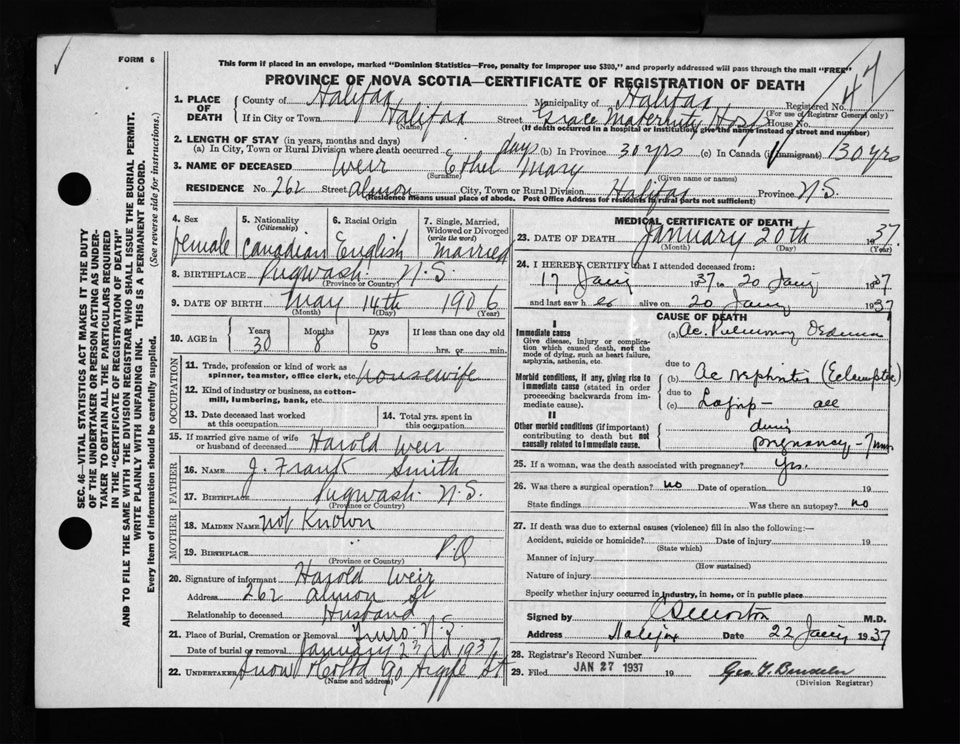 FORM 6
This form if placed in an envelope, marked "Dominion Statistics—Free, penalty for improper use $300," and properly addressed will pass through the mail "FREE"
PROVINCE OF NOVA SCOTIA—CERTIFICATE OF REGISTRATION OF DEATH
47
1. PLACE OF DEATH { County of Halifax Municipality of Halifax Registered No.
(For use of Registrar General only)
If in City or Town Halifax Street Grace Maternity Hosp House No.
(Name) (If death occurred in a hospital or institution, give the name instead of street and number)
2. LENGTH OF STAY (in years, months and days)
(a) In City, Town or Rural Division where death occurred days (b) In Province 30 yrs (c) In Canada (if immigrant) 30 yrs
3. NAME OF DECEASED Weir Ethel Mary
(Surname) (Given name or names)
RESIDENCE No. 262 Street Almon City, Town or Rural Division Halifax Province N.S.
(Residence means usual place of abode. Post Office Address for residents in rural parts not sufficient)
4. Sex female
5. Nationality (Citizenship) Canadian
6. Racial Origin English
7. Single, Married, Widowed or Divorced (write the word) Married
8. BIRTHPLACE Pugwash N.S.
(Province or Country)
9. DATE OF BIRTH May 14th 1906
(Month) (Day) (Year)
10. AGE in Years 30 Months 8 Days 6 If less than one day old hrs. or min.
OCCUPATION
11. Trade, profession or kind of work as spinner, teamster, office clerk, etc. housewife
12. Kind of industry or business, as cotton-mill, lumbering, bank, etc.
13. Date deceased last worked at this occupation
14. Total yrs. spent in this occupation
15. If married give name of wife or husband of deceased Harold Weir
FATHER
16. NAME J. Frank Smith
17. BIRTHPLACE Pugwash N.S.
(Province or Country)
MOTHER
18. MAIDEN NAME not Known
19. BIRTHPLACE P.Q
(Province or Country)
20. Signature of informant Harold Weir
Address 262 Almon St
Relationship to deceased Husband
21. Place of Burial, Cremation or Removal Truro N.S.
Date of burial or removal January 23rd 1937
22. UNDERTAKER Snow & Co Ltd 90 Argyle St
(Name and address)
MEDICAL CERTIFICATE OF DEATH
23. DATE OF DEATH January 20th 1937.
(Month) (Day)
24. I HEREBY CERTIFY that I attended deceased from:
17 Jany 1937 to 20 Jany 1937
and last saw h er alive on 20 Jany 1937
CAUSE OF DEATH
I
Immediate cause
Give disease, injury or complication which caused death, not the mode of dying, such as heart failure, asphyxia, asthenia, etc.
(a) Ac. Pulmonary Oedema
due to
Morbid conditions, if any, giving rise to immediate cause (stated in order proceeding backwards from immediate cause).
(b) Ac Nephritis (Eclamptic)
due to
(c)
II
Other morbid conditions (if important) contributing to death but not causally related to immediate cause.
during
pregnancy
25. If a woman, was the death associated with pregnancy? yes.
26. Was there a surgical operation? no Date of operation 19
State findings Was there an autopsy? no
27. If death was due to external causes (violence) fill in also the following:—
Accident, suicide or homicide? Date of injury 19
(State which)
Manner of injury
(How sustained)
Nature of injury
Specify whether injury occurred in industry, in home, or in public place
Signed by M.D.
Address Halifax Date 22 Jany 1937
28. Registrar's Record Number
29. Filed JAN 27 1937 19
(Division Registrar)
SEC. 46—VITAL STATISTICS ACT MAKES IT THE DUTY
OF THE UNDERTAKER OR PERSON ACTING AS UNDER-
TAKER TO OBTAIN ALL THE PARTICULARS REQUIRED
IN THE "CERTIFICATE OF REGISTRATION OF DEATH"
AND TO FILE THE SAME WITH THE DIVISION REGISTRAR WHO SHALL ISSUE THE BURIAL PERMIT.
WRITE PLAINLY WITH UNFADING INK. THIS IS A PERMANENT RECORD.
Every item of information should be carefully supplied. (See reverse side for instructions.)